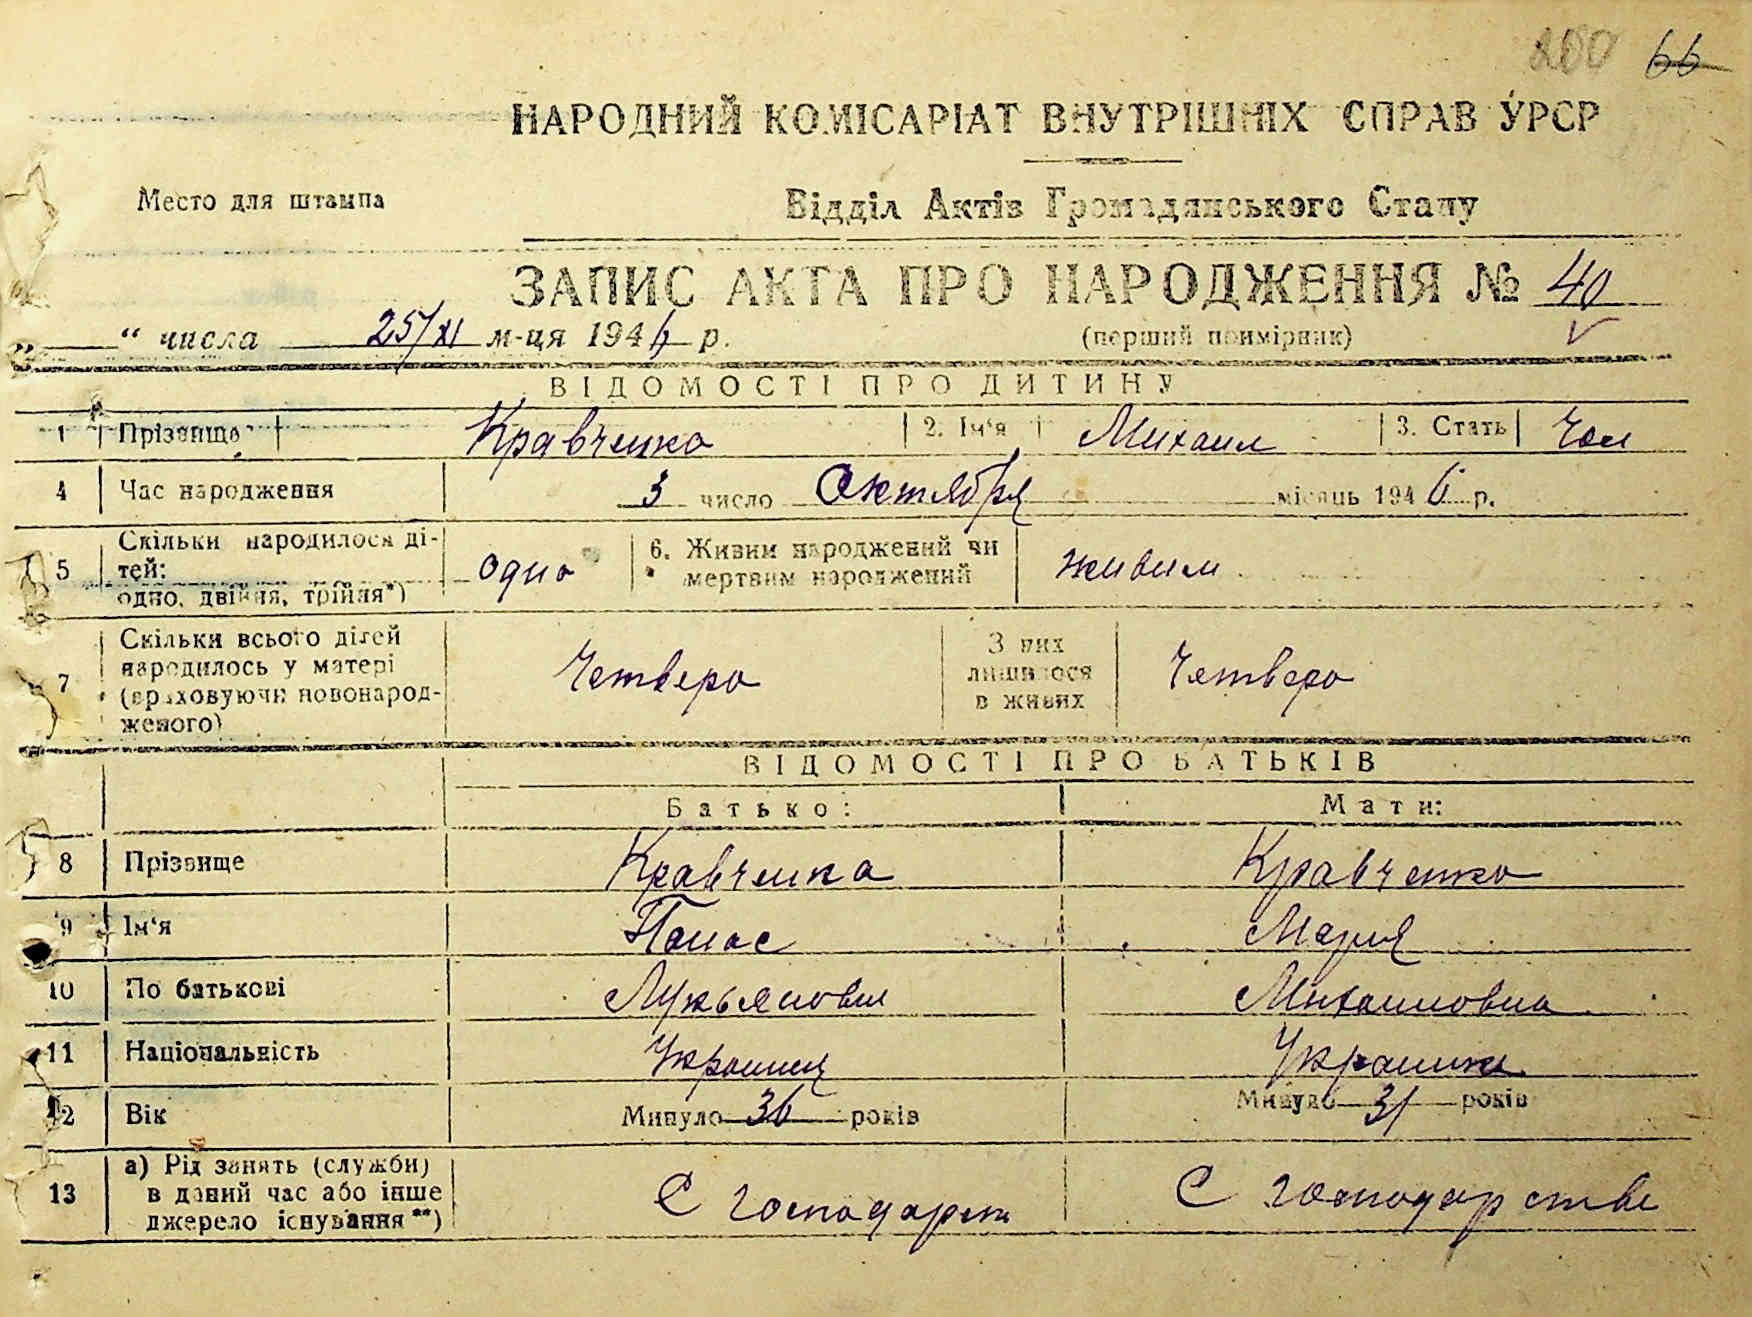 200 66
НАРОДНИЙ КОМІСАРІАТ ВНУТРІШНІХ СПРАВ УРСР
Место для штампа
Відділ Актів Громадянського Стану
ЗАПИС АКТА ПРО НАРОДЖЕННЯ № 40
„ “ числа 25/XI м-ця 1946 р. (перший примірник)
ВІДОМОСТІ ПРО ДИТИНУ
1 Прізвище Кравченко 2. Ім‘я Михаил 3. Стать Чол
4 Час народження 3 число Октября місяць 1946 р.
5 Скільки народилося ді-
тей:
одно, двійня, трійня*) одно 6. Живим народжений чи
мертвим народжений живим
7 Скільки всього дітей
народилось у матері
(враховуючи новонарод-
женого) Четверо З них
лишилося
в живих Четверо
ВІДОМОСТІ ПРО БАТЬКІВ
Батько: Мати:
8 Прізвище Кравченко Кравченко
9 Ім‘я Панас Мария
10 По батькові Лукьянович Михаиловна
11 Національність Украинец Украинка
12 Вік Минуло 36 років Минуло 31 років
13 а) Рід занять (служби)
в даний час або інше
джерело існування**) С господарств С господарстве